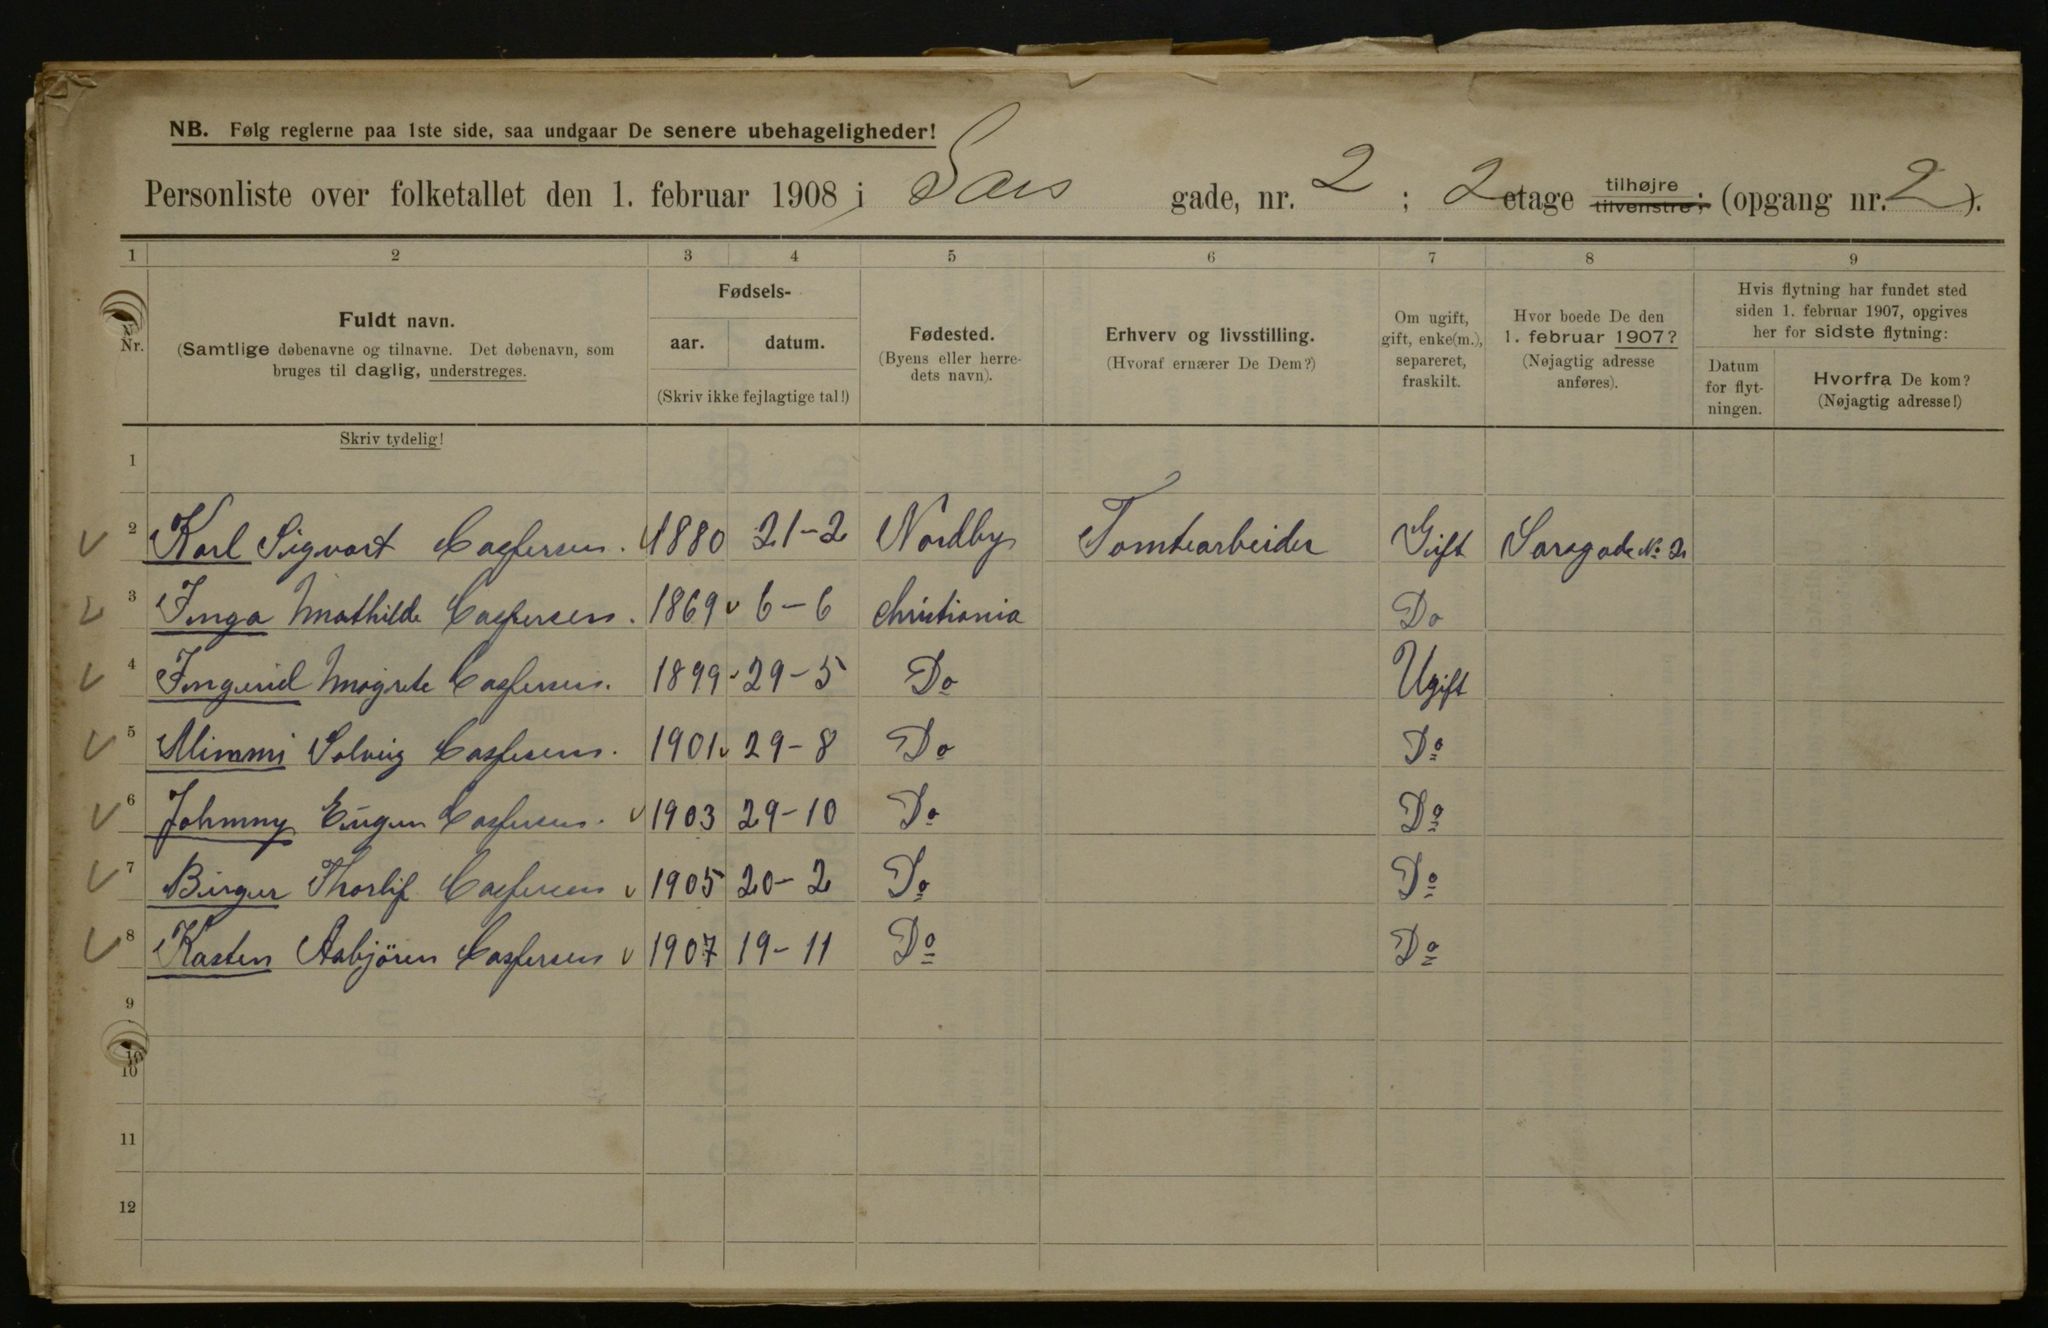 NB. Følg reglerne paa 1ste side, saa undgaar De senere ubehageligheder!
Personliste over folketallet den 1. februar 1908 i Sars gade, nr. 2 ; 2 etage tilhøjre tilvenstre; (opgang nr. 2).
1 2 3 4 5 6 7 8 9
Nr.
Fuldt navn.
(Samtlige døbenavne og tilnavne. Det døbenavn, som
bruges til daglig, understreges.
Skriv tydelig!
Fødsels-
aar. datum.
(Skriv ikke fejlagtige tal!)
Fødested.
(Byens eller herre-
dets navn).
Erhverv og livsstilling.
(Hvoraf ernærer De Dem?)
Om ugift,
gift, enke(m.),
separeret,
fraskilt.
Hvor boede De den
1. februar 1907?
(Nøjagtig adresse
anføres).
Hvis flytning har fundet sted
siden 1. februar 1907, opgives
her for sidste flytning:
Datum
for flyt-
ningen.
Hvorfra De kom?
(Nøjagtig adresse!)
1
2 Karl Sigvart Caspersen. 1880 21-2 Nordby Tomtearbeider Gift Sarsgade No 2
3 Inga Mathilde Caspersen. 1869 6-6 Christiania Do
4 Ingerid Magrete Caspersen. 1899 29-5 Do Ugift
5 Mimmi Solveig Caspersen. 1901 29-8 Do Do
6 Johnny Eugen Caspersen. 1903 29-10 Do Do
7 Birger Thorlif Caspersen 1905 20-2 Do Do
8 Kasten Asbjören Caspersen 1907 19-11 Do Do
9
10
10
11
12